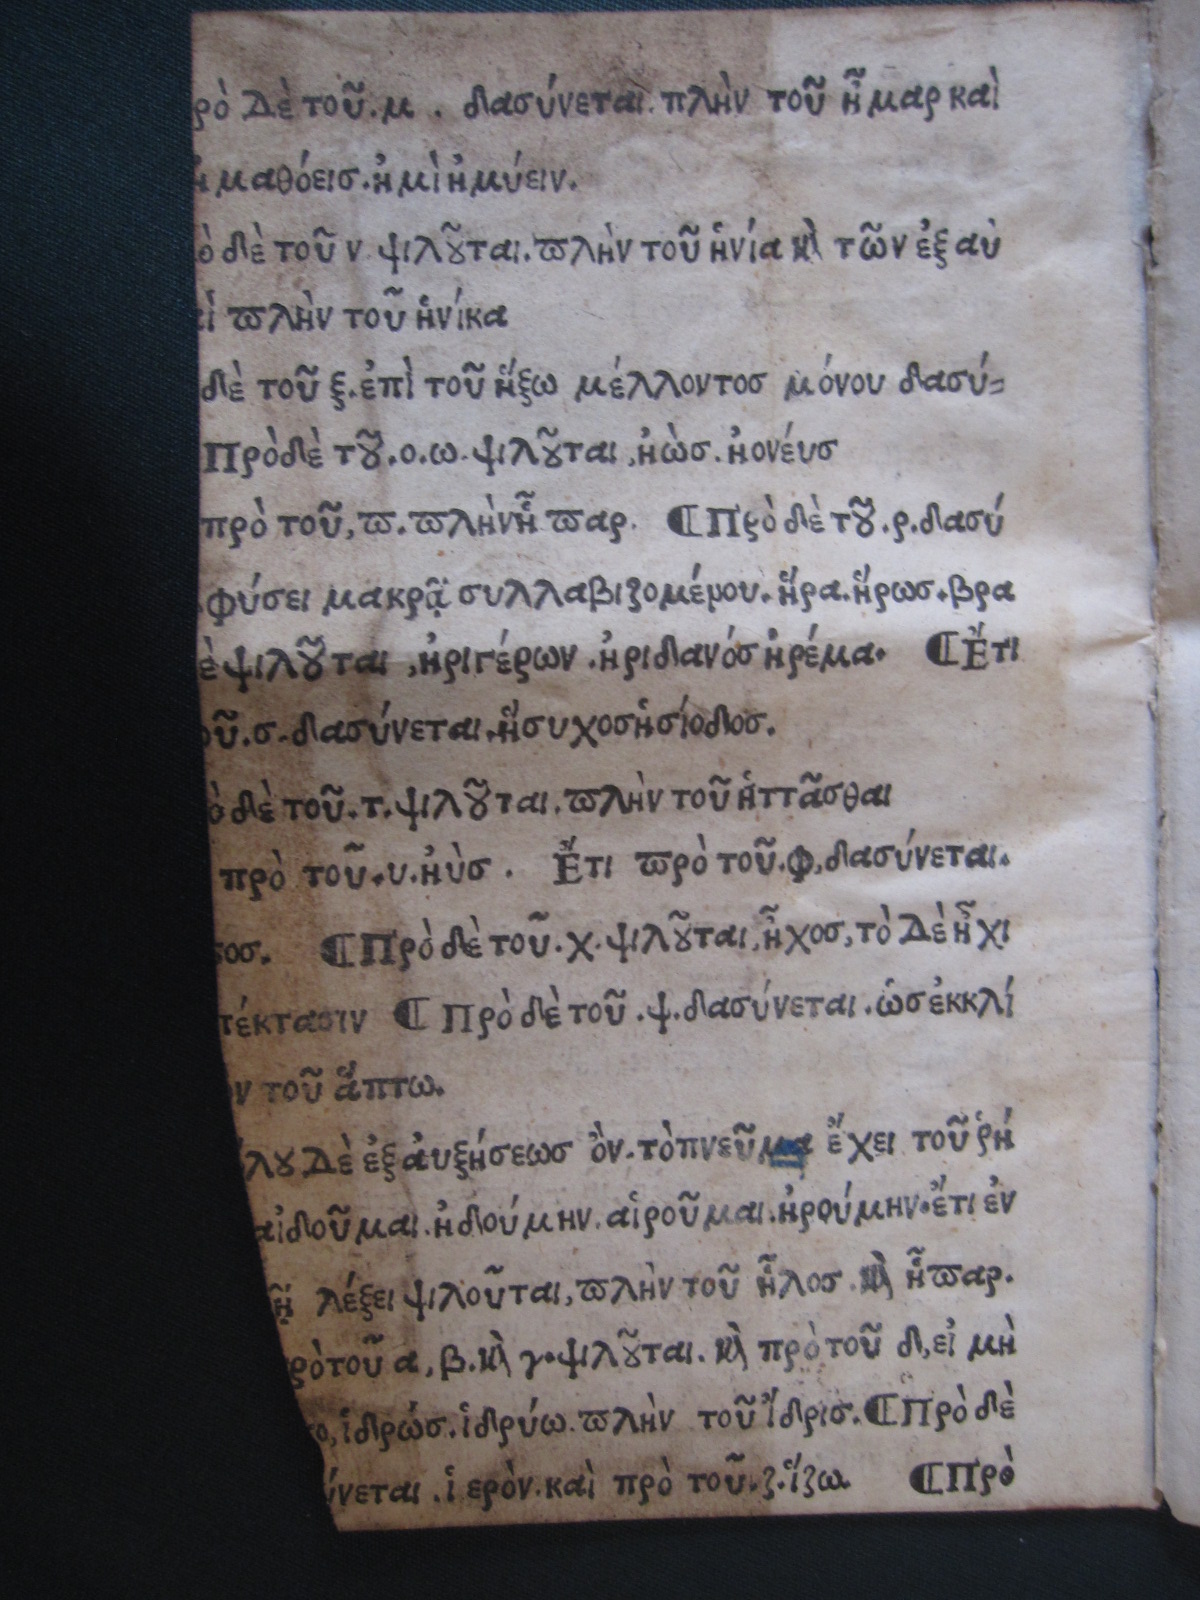 ρὸ Δὲ τοῦ.μ . δασύνεται. πλὴν τοῦ ἦμαρ καὶ
ἠμαθόεισ.ἠμὶ ἠμύειν.
ὸ δὲ τοῦ ν ψιλοῦται. πλὴν τοῦ ἡνία καὶ τῶν ἐξ αὐ
πλὴν τοῦ ἡνίκα
δὲ τοῦ ξ. ἐπὶ τοῦ ἥξω μέλλοντοσ μόνου δασύ=
Πρὸ δὲ τοῦ.ο.ω.ψιλοῦται ,ἠὼσ. ἠονέυσ
πρὸ τοῦ, π. πλὴν ἧπαρ. ¶Πρὸ δὲ τοῦ.ρ.δασύ
φύσει μακρᾷ συλλαβιζομένου.ἥρα.ἥρωσ.βρα
ὲ ψιλοῦται ,ἠριγέρων .ἠριδανόσ ἠρέμα. ¶Ἔτι
οῦ.σ. δασύνεται.ἥσυχοσ ἡσίοδοσ.
ὸ δὲ τοῦ.τ.ψιλοῦται. πλὴν τοῦ ἡττᾶσθαι
πρὸ τοῦ.υ.ἠὺσ . Ἔτι πρὸ τοῦ.φ,δασύνεται.
τοσ. ¶Πρὸ δὲ τοῦ.χ.ψιλοῦται,ἦχοσ, τὸ Δὲ ἧχι
τέκτασιν ¶ Πρὸ δὲ τοῦ .ψ.δασύνεται .ὡσ ἐκκλί
ον τοῦ ἅπτω.
λου Δὲ ἐξ ἀυξήσεωσ ὂν.τὸ πνεῦμα ἔχει τοῦ ῥή
αἰδοῦμαι.ἠδούμην.αἱροῦμαι.ἡρούμην.ἔτι ἐν
λέξει ψιλοῦται, πλὴν τοῦ ἧλοσ .καὶ ἧπαρ.
ρὸ τοῦ α, β.καὶ γ.ψιλοῦται. καὶ πρὸ τοῦ δ,εἰ μὴ
το,ἱδρώσ.ἱδρύω. πλὴν τοῦ ἴδρισ.¶Πρὸ δὲ
ύνεται .ἱερὸν.καὶ πρὸ τοῦ.ζ.ἵζω. ¶Πρὸ